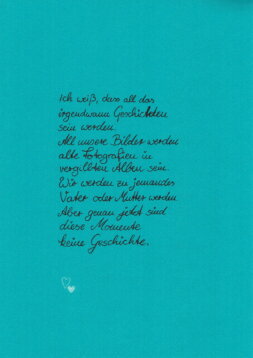 Ich weiß, dass all das
irgendwann Geschichten
sein werden.
All unsere Bilder werden
alte Fotografien in
vergilbten Alben sein.
Wir werden zu jemandes
Vater oder Mutter werden
Aber genau jetzt sind
diese Momente
keine Geschichte.